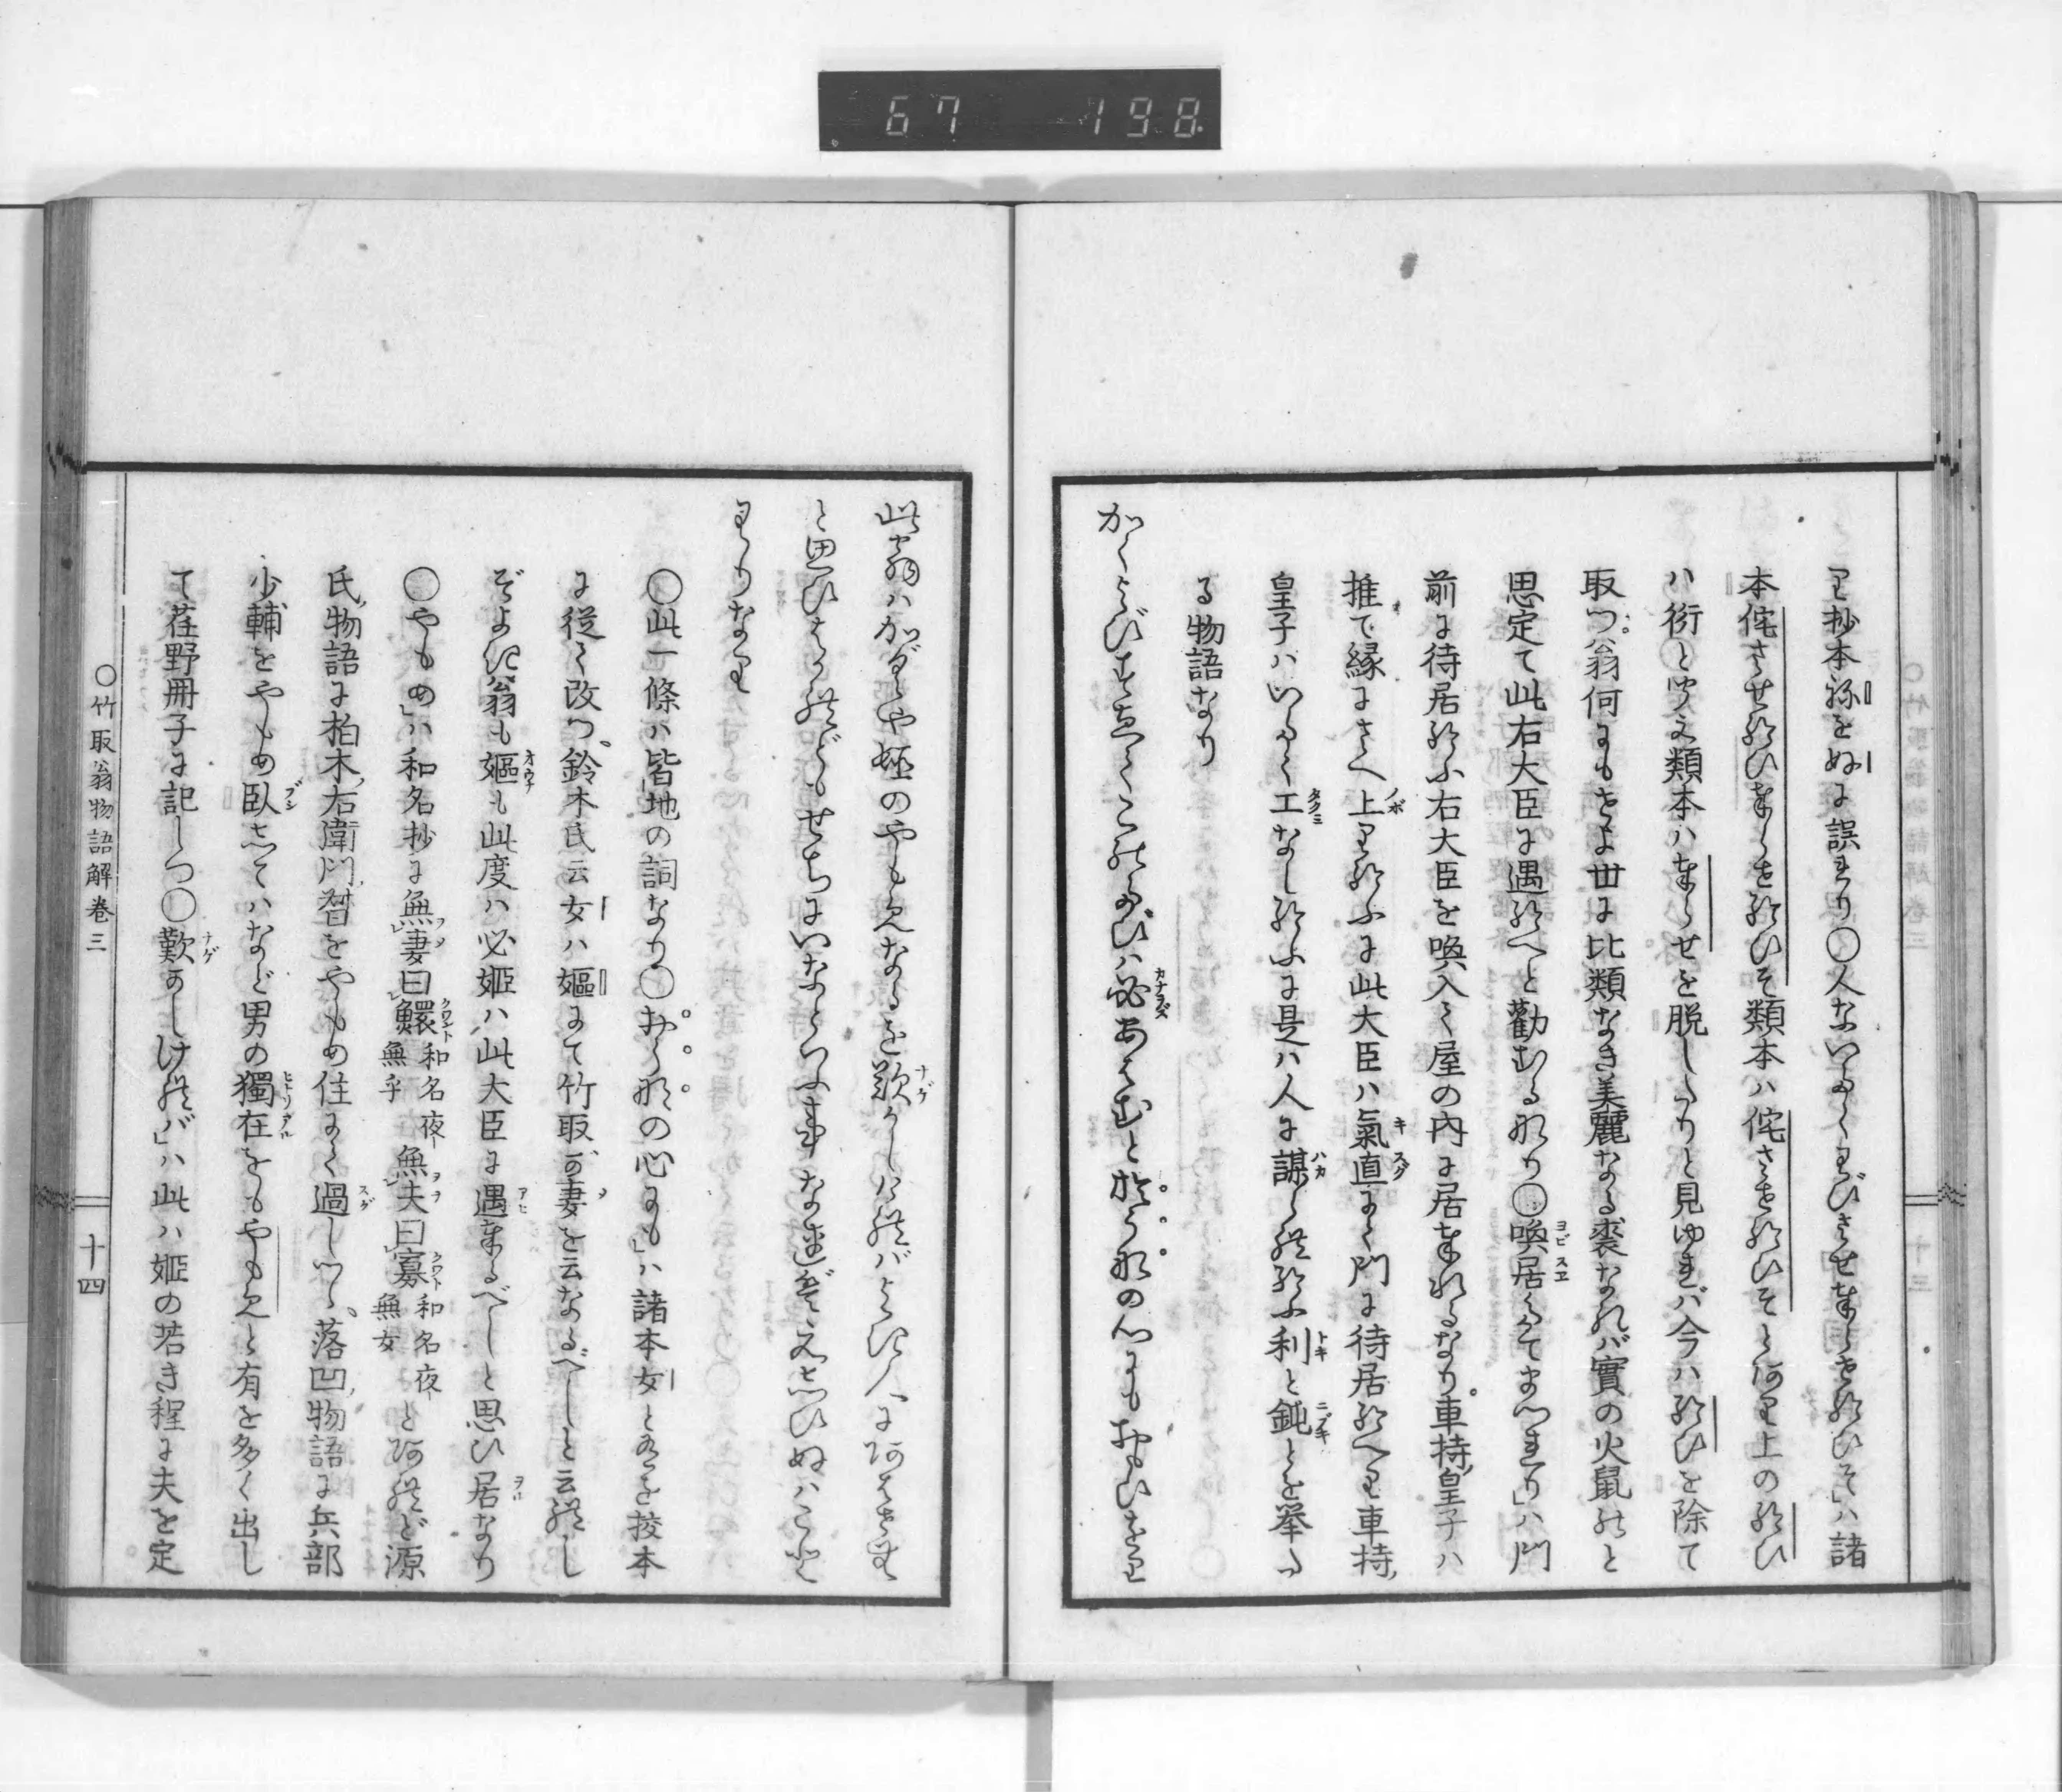 67 198
て抄本祢をぬに誤れり〇人ないたくわびさせ奉らせ給ひそ」ハ諸
本侘させ給ひ奉らせ給ひそ類本ハ侘させ給ひそとあり上の給ひ
ハ衍と聞え類本ハ奉らせを脱したりと見ゆれバ今ハ給ひを除て
取つ。翁何にもせよ世に比類なき美麗なる裘なれバ實の火鼠のと
思定て此右大臣に遇給へと勸むる也〇喚居ゑてまつれり」ハ門
前に待居給ふ右大臣を喚入て屋の内に居奉れるなり。車持皇子ハ
推て縁にさへ上り給ふに此大臣ハ氣直にて門に待居給へり車持
皇子ハいたく工なし給ふに是ハ人に謀られ給ふ利と鈍とを挙た
る物語なり
かくよびすゑてこの度ハ必あはむとおうなの心にもおもひをり
此翁ハかぐや姫のやもめなるを歎かしければよき人にあはせむ
と思ひはかれどもせちにいなといふ事なればえしひぬハことわ
りなり
〇此一條ハ皆地の詞なり〇おうなの心にも」ハ諸本女とあるを挍本
に從て改つ鈴木氏云女ハ嫗にて竹取が妻を云なるべしと云れし
ぞよき翁も嫗も此度ハ必姫ハ此大臣に遇奉るべしと思ひ居なり
〇やもめ」ハ和名抄に無妻曰鰥和名夜無乎無夫曰寡和名夜無女とあれど源
氏物語に柏木右衛門督をやもめ住にて過しつゝ落凹物語に兵部
少輔をやもめ臥してハなど男の獨在をもやもめと有を多く出し
て荏野冊子に記しつ〇歎かしければ」ハ此ハ姫の若き程に夫を定
〇竹取翁物語解巻三
十四